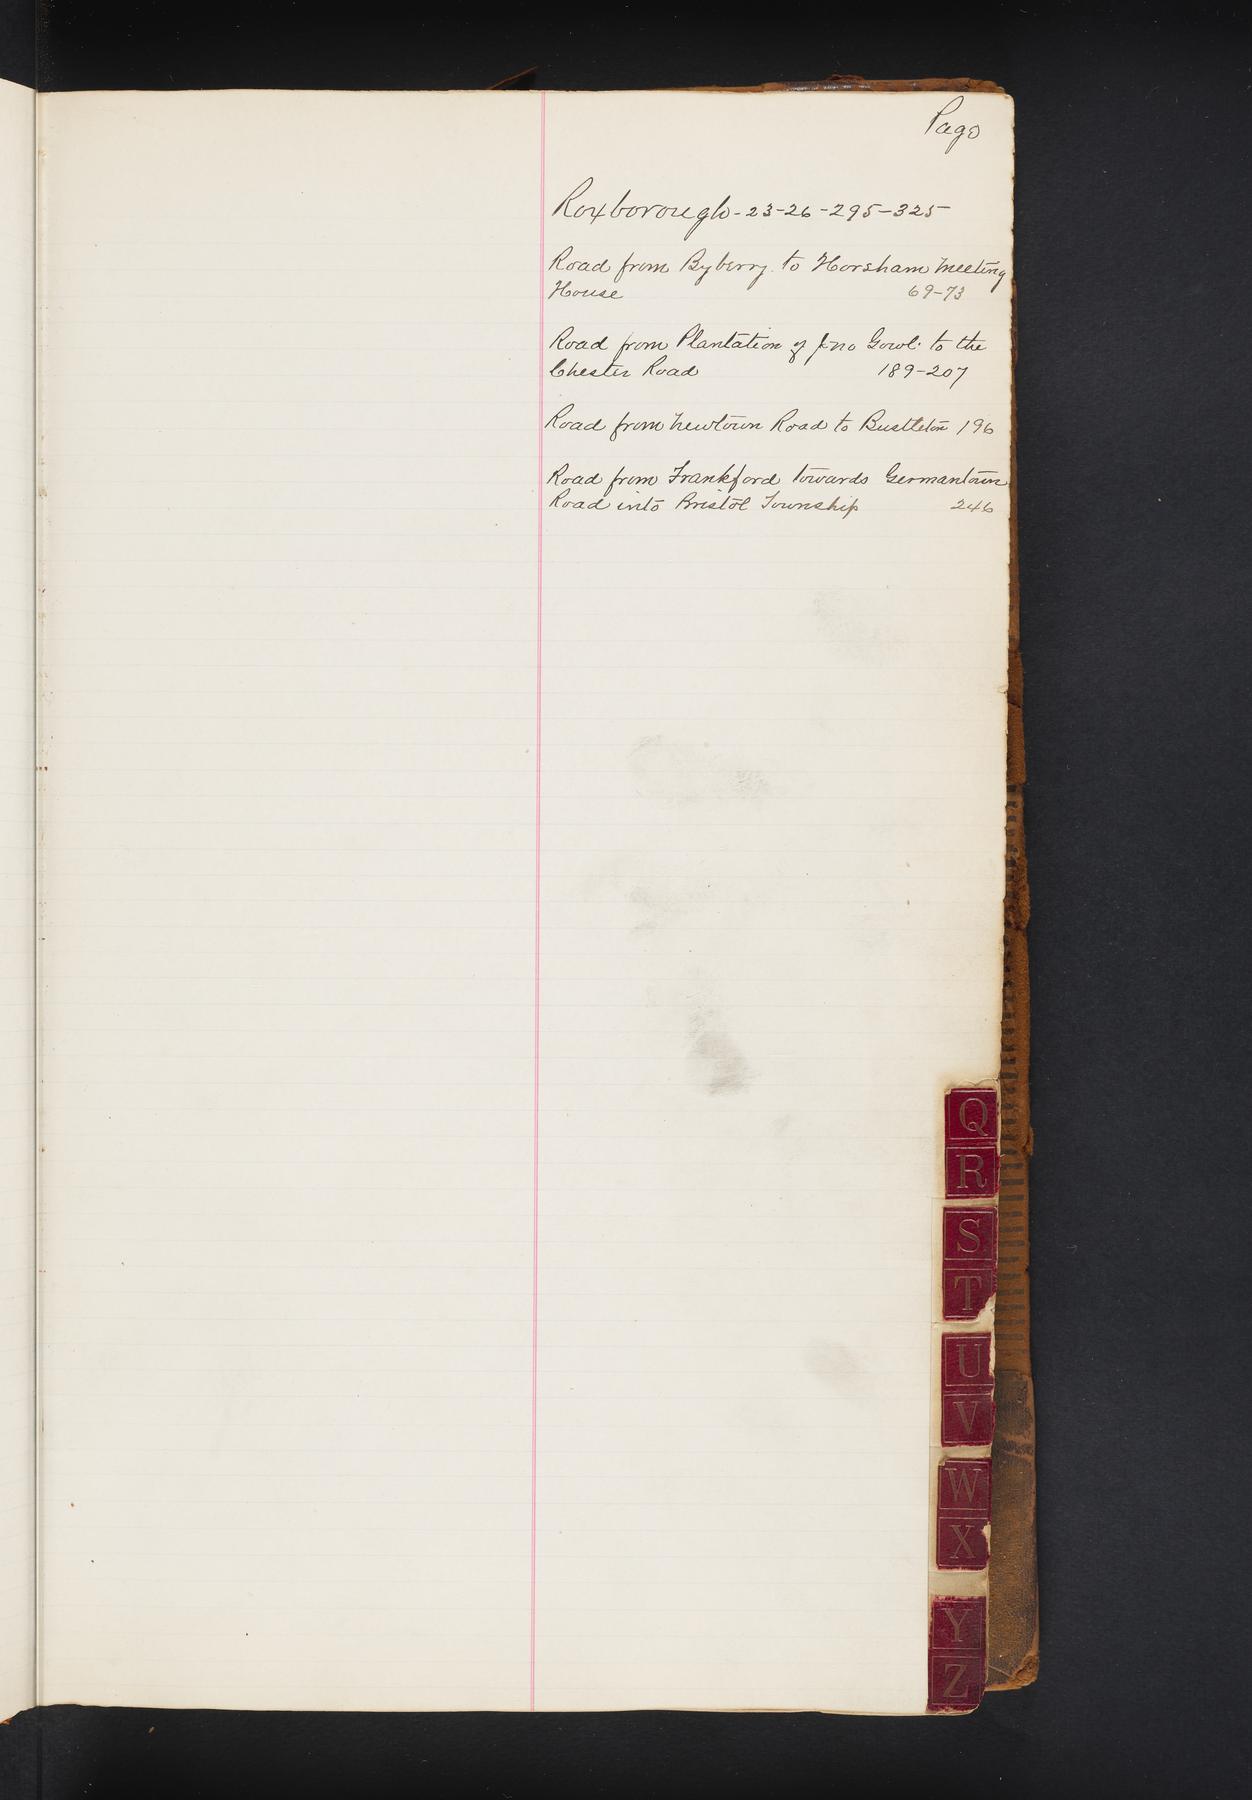 Page
Roxborough-23-26-295-325
Road from Byberry to Horsham Meeting
House 69-73
Road from Plantation of Jno Gowl to the
Chester Road 189-207
Road from Newtown Road to Bustleton 196
Road from Frankford towards Germantown
Road into Bristol Township 246
Q
R
S
T
U
V
W
X
Y
Z